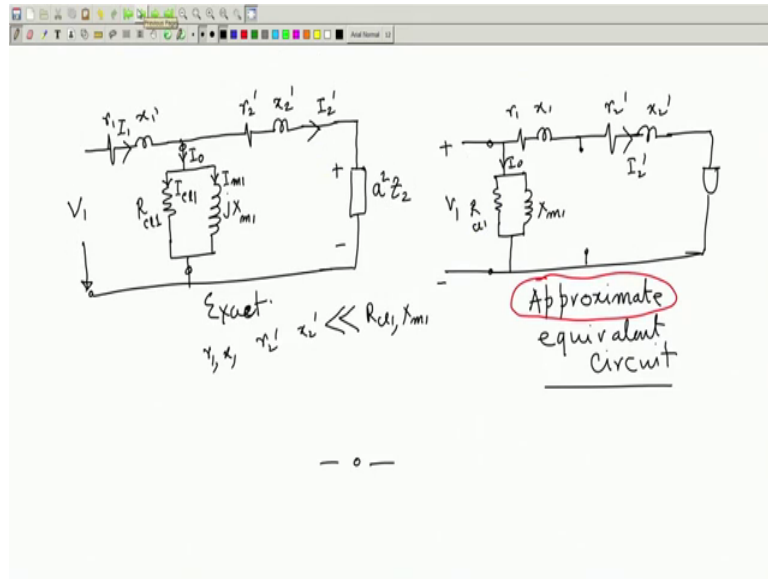 Previous Page
Arial Normal 12
r₁ I₁ x₁'
r₂' x₂' I₂'
I₀
I_cl1 I_m1
R_cl1 jX_m1
V₁
+
a²Z₂
−
Exact.
r₁, x₁, r₂' x₂' << R_cl1, X_m1
r₁ x₁ r₂' x₂'
+
I₀
I₂'
V₁ R_cl1 X_m1
−
Approximate
equivalent
circuit